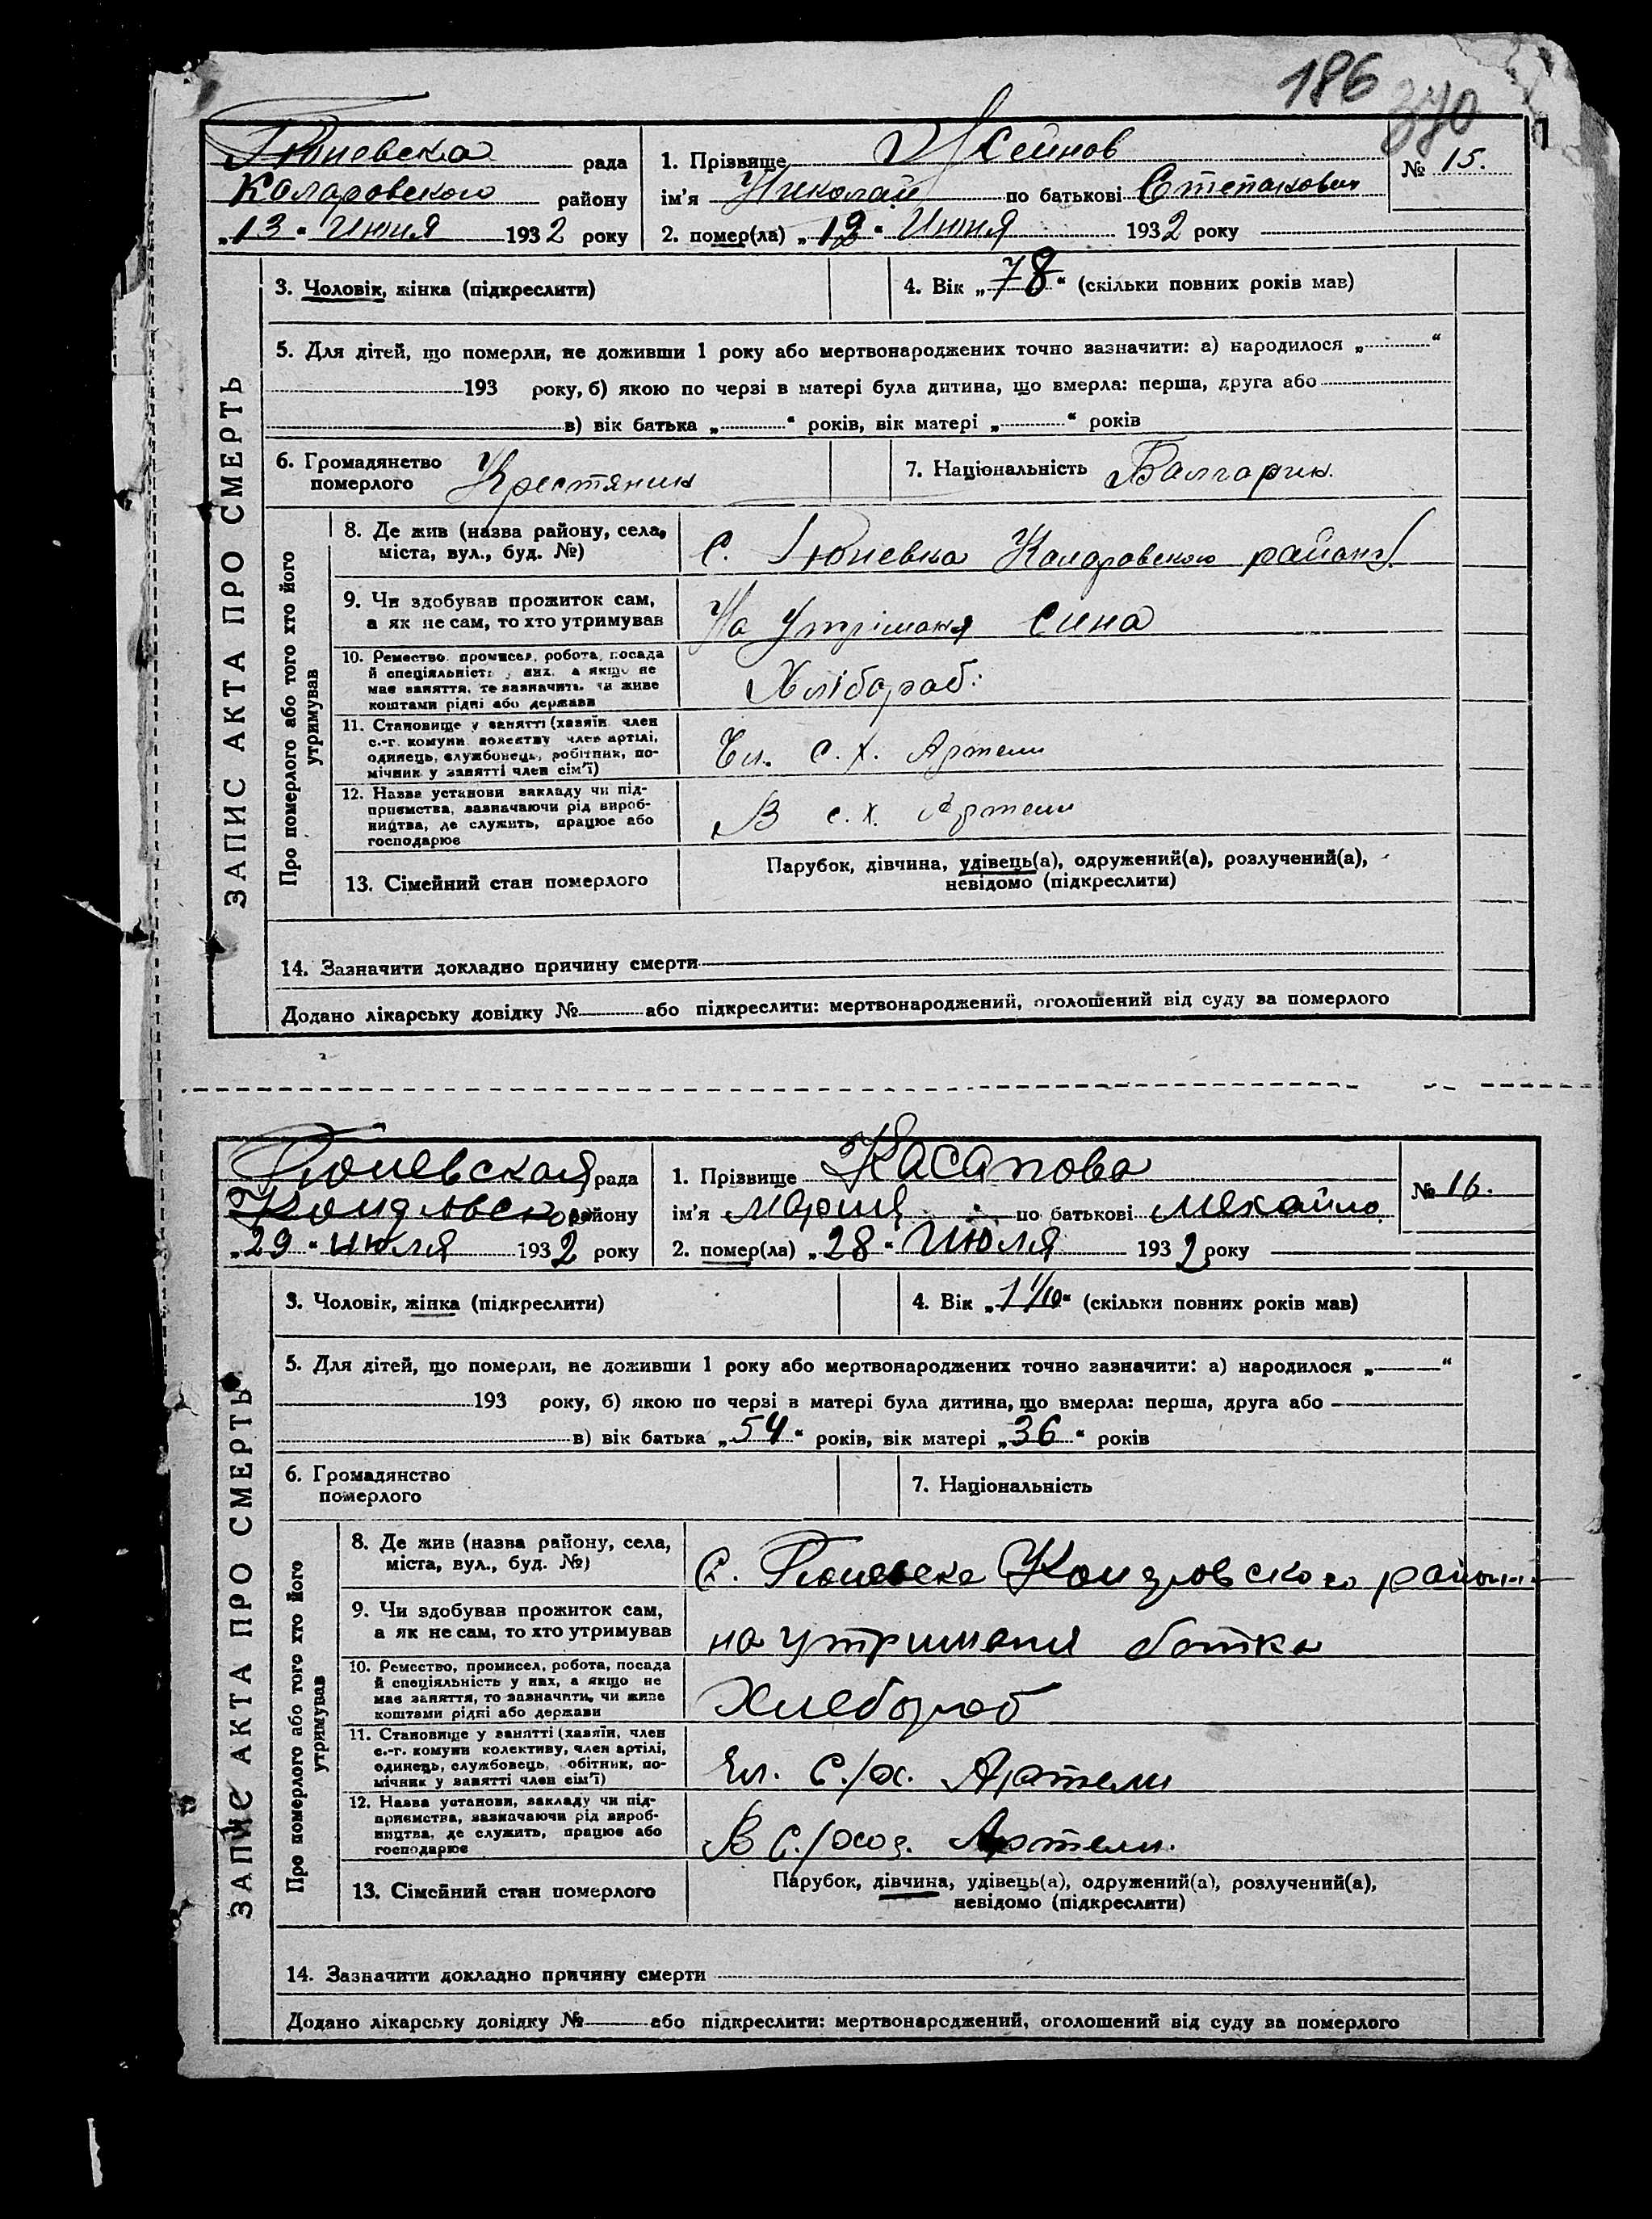 186
370
Гюневска рада
Коларовского району
„13“ Июня 1932 року
1. Прізвище
ім'я Николай по батькові Степанович
2. помер(ла) „12“ Июня 1932 року
№ 15.
ЗАПИС АКТА ПРО СМЕРТЬ
3. Чоловік, жінка (підкреслити)
4. Вік „78“ (скільки повних років мав)
5. Для дітей, що померли, не доживши 1 року або мертвонароджених точно зазначити: а) народилося „ “
193 року, б) якою по черзі в матері була дитина, що вмерла: перша, друга або
в) вік батька „ “ років, вік матері „ “ років
6. Громадянство
померлого Крестяник
7. Національність Болгарин.
Про померлого або того хто його
утримував
8. Де жив (назва району, села,
міста, вул., буд. №)
С. Гюневка Коларовского району
9. Чи здобував прожиток сам,
а як не сам, то хто утримував
На утріманя сина
10. Ремество, промисел, робота, посада
й спеціяльність у них, а якщо не
має заняття, то зазначить, чи живе
коштами рідні або держави
Хлібороб.
11. Становище у занятті (хазяїн, член
с.-г. комуни, колективу, член артілі,
одинець, службовець, робітник, по-
мічник у занятті член сім'ї)
Чл. с. х. Артели
12. Назва установи, закладу чи під-
приємства, зазначаючи рід вироб-
ництва, де служить, працює або
господарює
В с. х. Артели
13. Сімейний стан померлого
Парубок, дівчина, удівець(а), одружений(а), розлучений(а),
невідомо (підкреслити)
14. Зазначити докладно причину смерти
Додано лікарську довідку № або підкреслити: мертвонароджений, оголошений від суду за померлого
Гюневская рада
району
„29“ июля 1932 року
1. Прізвище Касапова
ім'я Мария по батькові Михайло
2. помер(ла) „28“ Июля 1932 року
№ 16.
ЗАПИС АКТА ПРО СМЕРТЬ
3. Чоловік, жінка (підкреслити)
4. Вік „1 1/10“ (скільки повних років мав)
5. Для дітей, що померли, не доживши 1 року або мертвонароджених точно зазначити: а) народилося „ “
193 року, б) якою по черзі в матері була дитина, що вмерла: перша, друга або
в) вік батька „54“ років, вік матері „36“ років
6. Громадянство
померлого
7. Національність
Про померлого або того хто його
утримував
8. Де жив (назва району, села,
міста, вул., буд. №)
С. району
9. Чи здобував прожиток сам,
а як не сам, то хто утримував
на утриманя батка
10. Ремество, промисел, робота, посада
й спеціяльність у них, а якщо не
має заняття, то зазначити, чи живе
коштами рідні або держави
Хлебороб
11. Становище у занятті (хазяїн, член
с.-г. комуни колективу, член артілі,
одинець, службовець, обітник, по-
мічник у занятті член сім'ї)
Чл. С./х. Артели
12. Назва установи, закладу чи під-
приємства, зазначаючи рід вироб-
ництва, де служить, працює або
господарює
В С./хоз. Артели.
13. Сімейний стан померлого
Парубок, дівчина, удівець(а), одружений(а), розлучений(а),
невідомо (підкреслити)
14. Зазначити докладно причину смерти
Додано лікарську довідку № або підкреслити: мертвонароджений, оголошений від суду за померлого